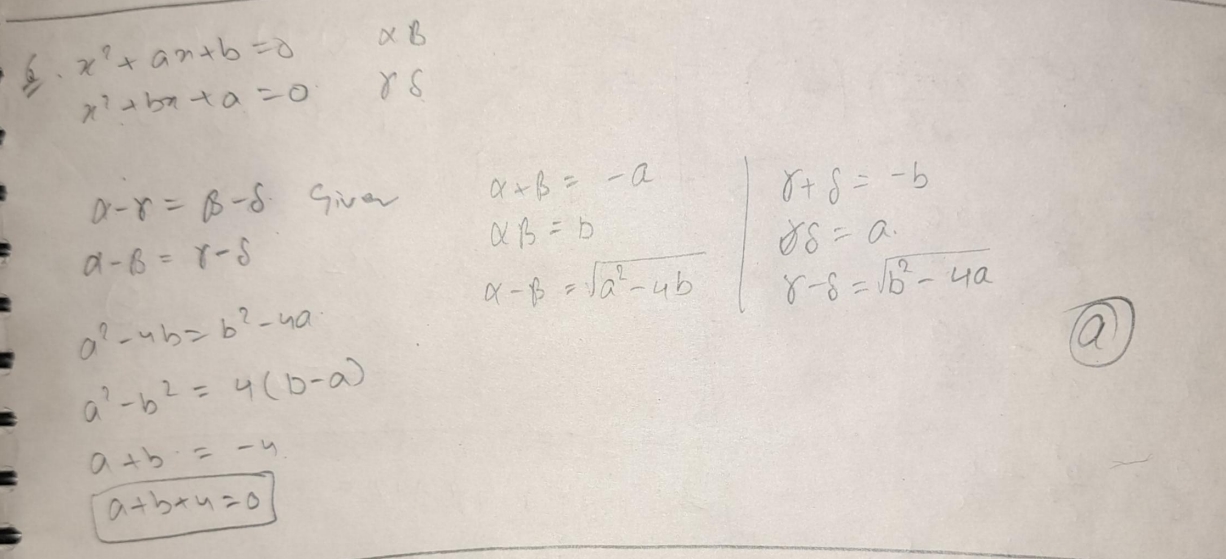 6. x² + ax + b = 0 α β
x² + bx + a = 0 γ δ
α - γ = β - δ Given
α - β = γ - δ
a² - 4b = b² - 4a
a² - b² = 4(b - a)
a + b = -4
a + b + 4 = 0
α + β = -a
αβ = b
α - β = √(a² - 4b)
γ + δ = -b
γδ = a.
γ - δ = √(b² - 4a)
a